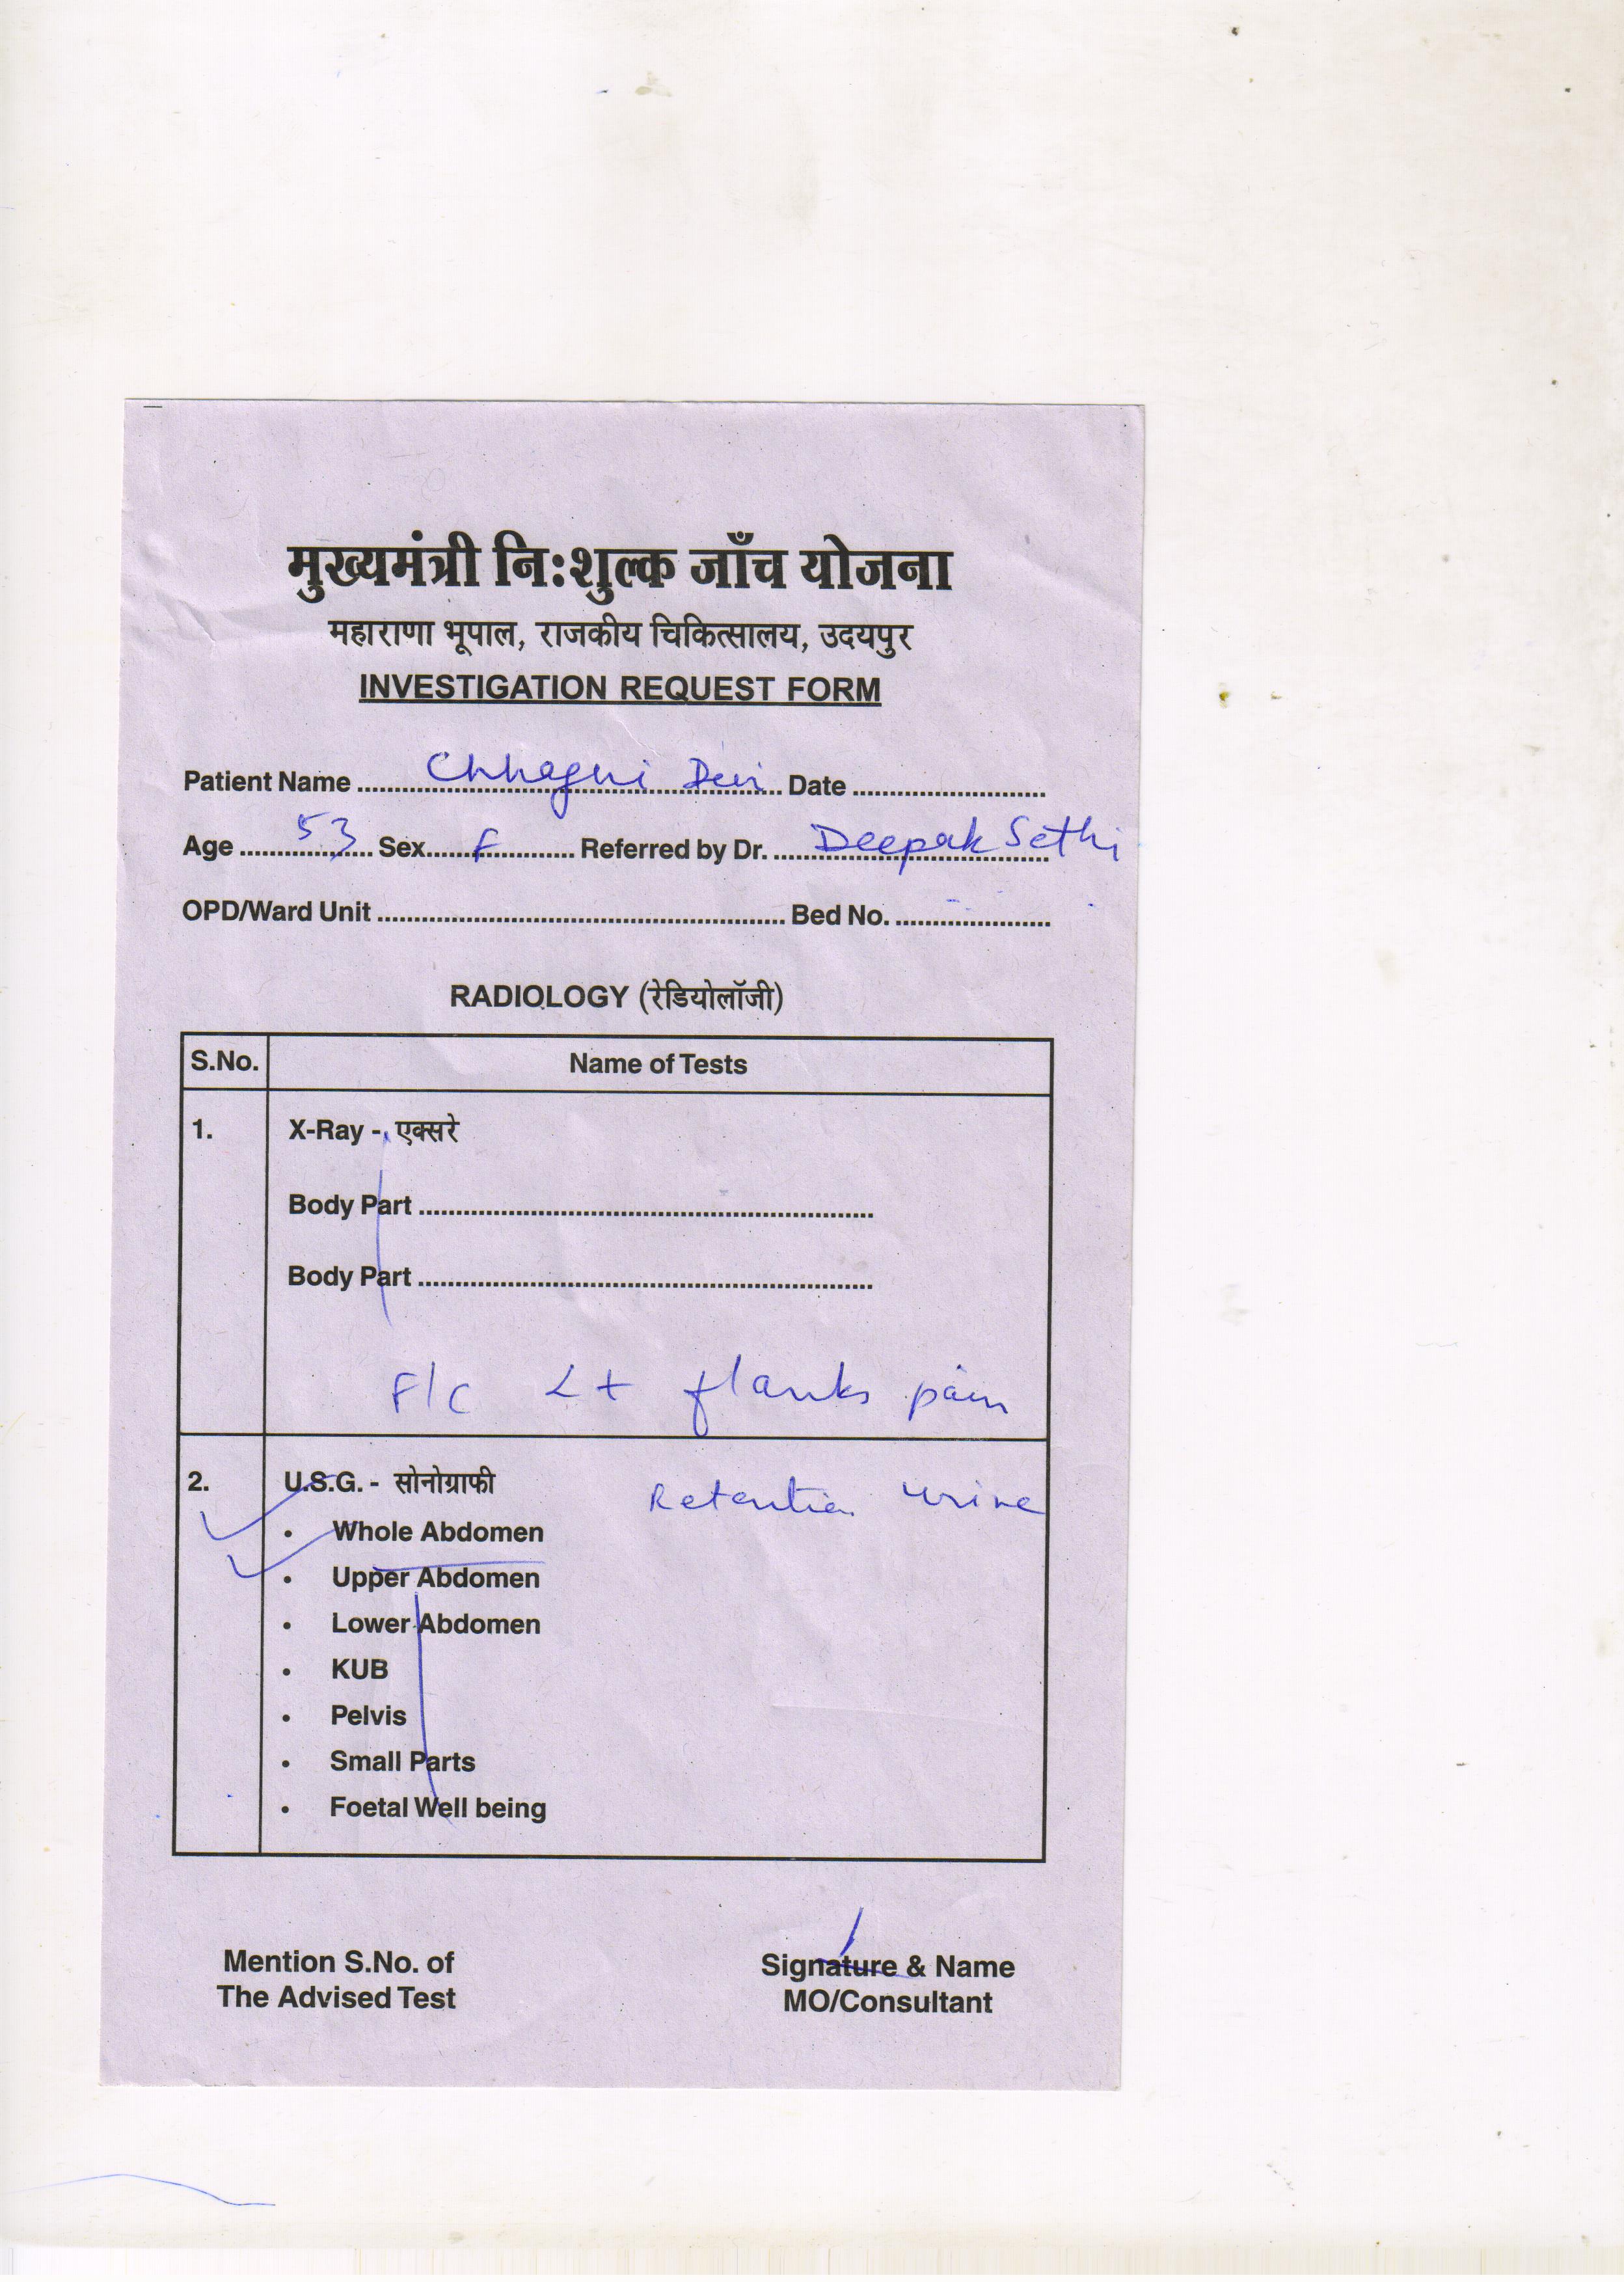 मुख्यमंत्री नि:शुल्क जाँच योजना
महाराणा भूपाल, राजकीय चिकित्सालय, उदयपुर
INVESTIGATION REQUEST FORM
Patient Name ........ Chhagni Devi ........ Date ........
Age ........ 53 Sex ........ F ........ Referred by Dr. ........ Deepak Sethi
OPD/Ward Unit ........ Bed No. ........
RADIOLOGY (रेडियोलॉजी)
S.No. Name of Tests
1. X-Ray - एक्सरे
Body Part ........
Body Part ........
F/C Lt flanks pain
2. U.S.G. - सोनोग्राफी
Retention urine
• Whole Abdomen
• Upper Abdomen
• Lower Abdomen
• KUB
• Pelvis
• Small Parts
• Foetal Well being
Mention S.No. of
The Advised Test
Signature & Name
MO/Consultant